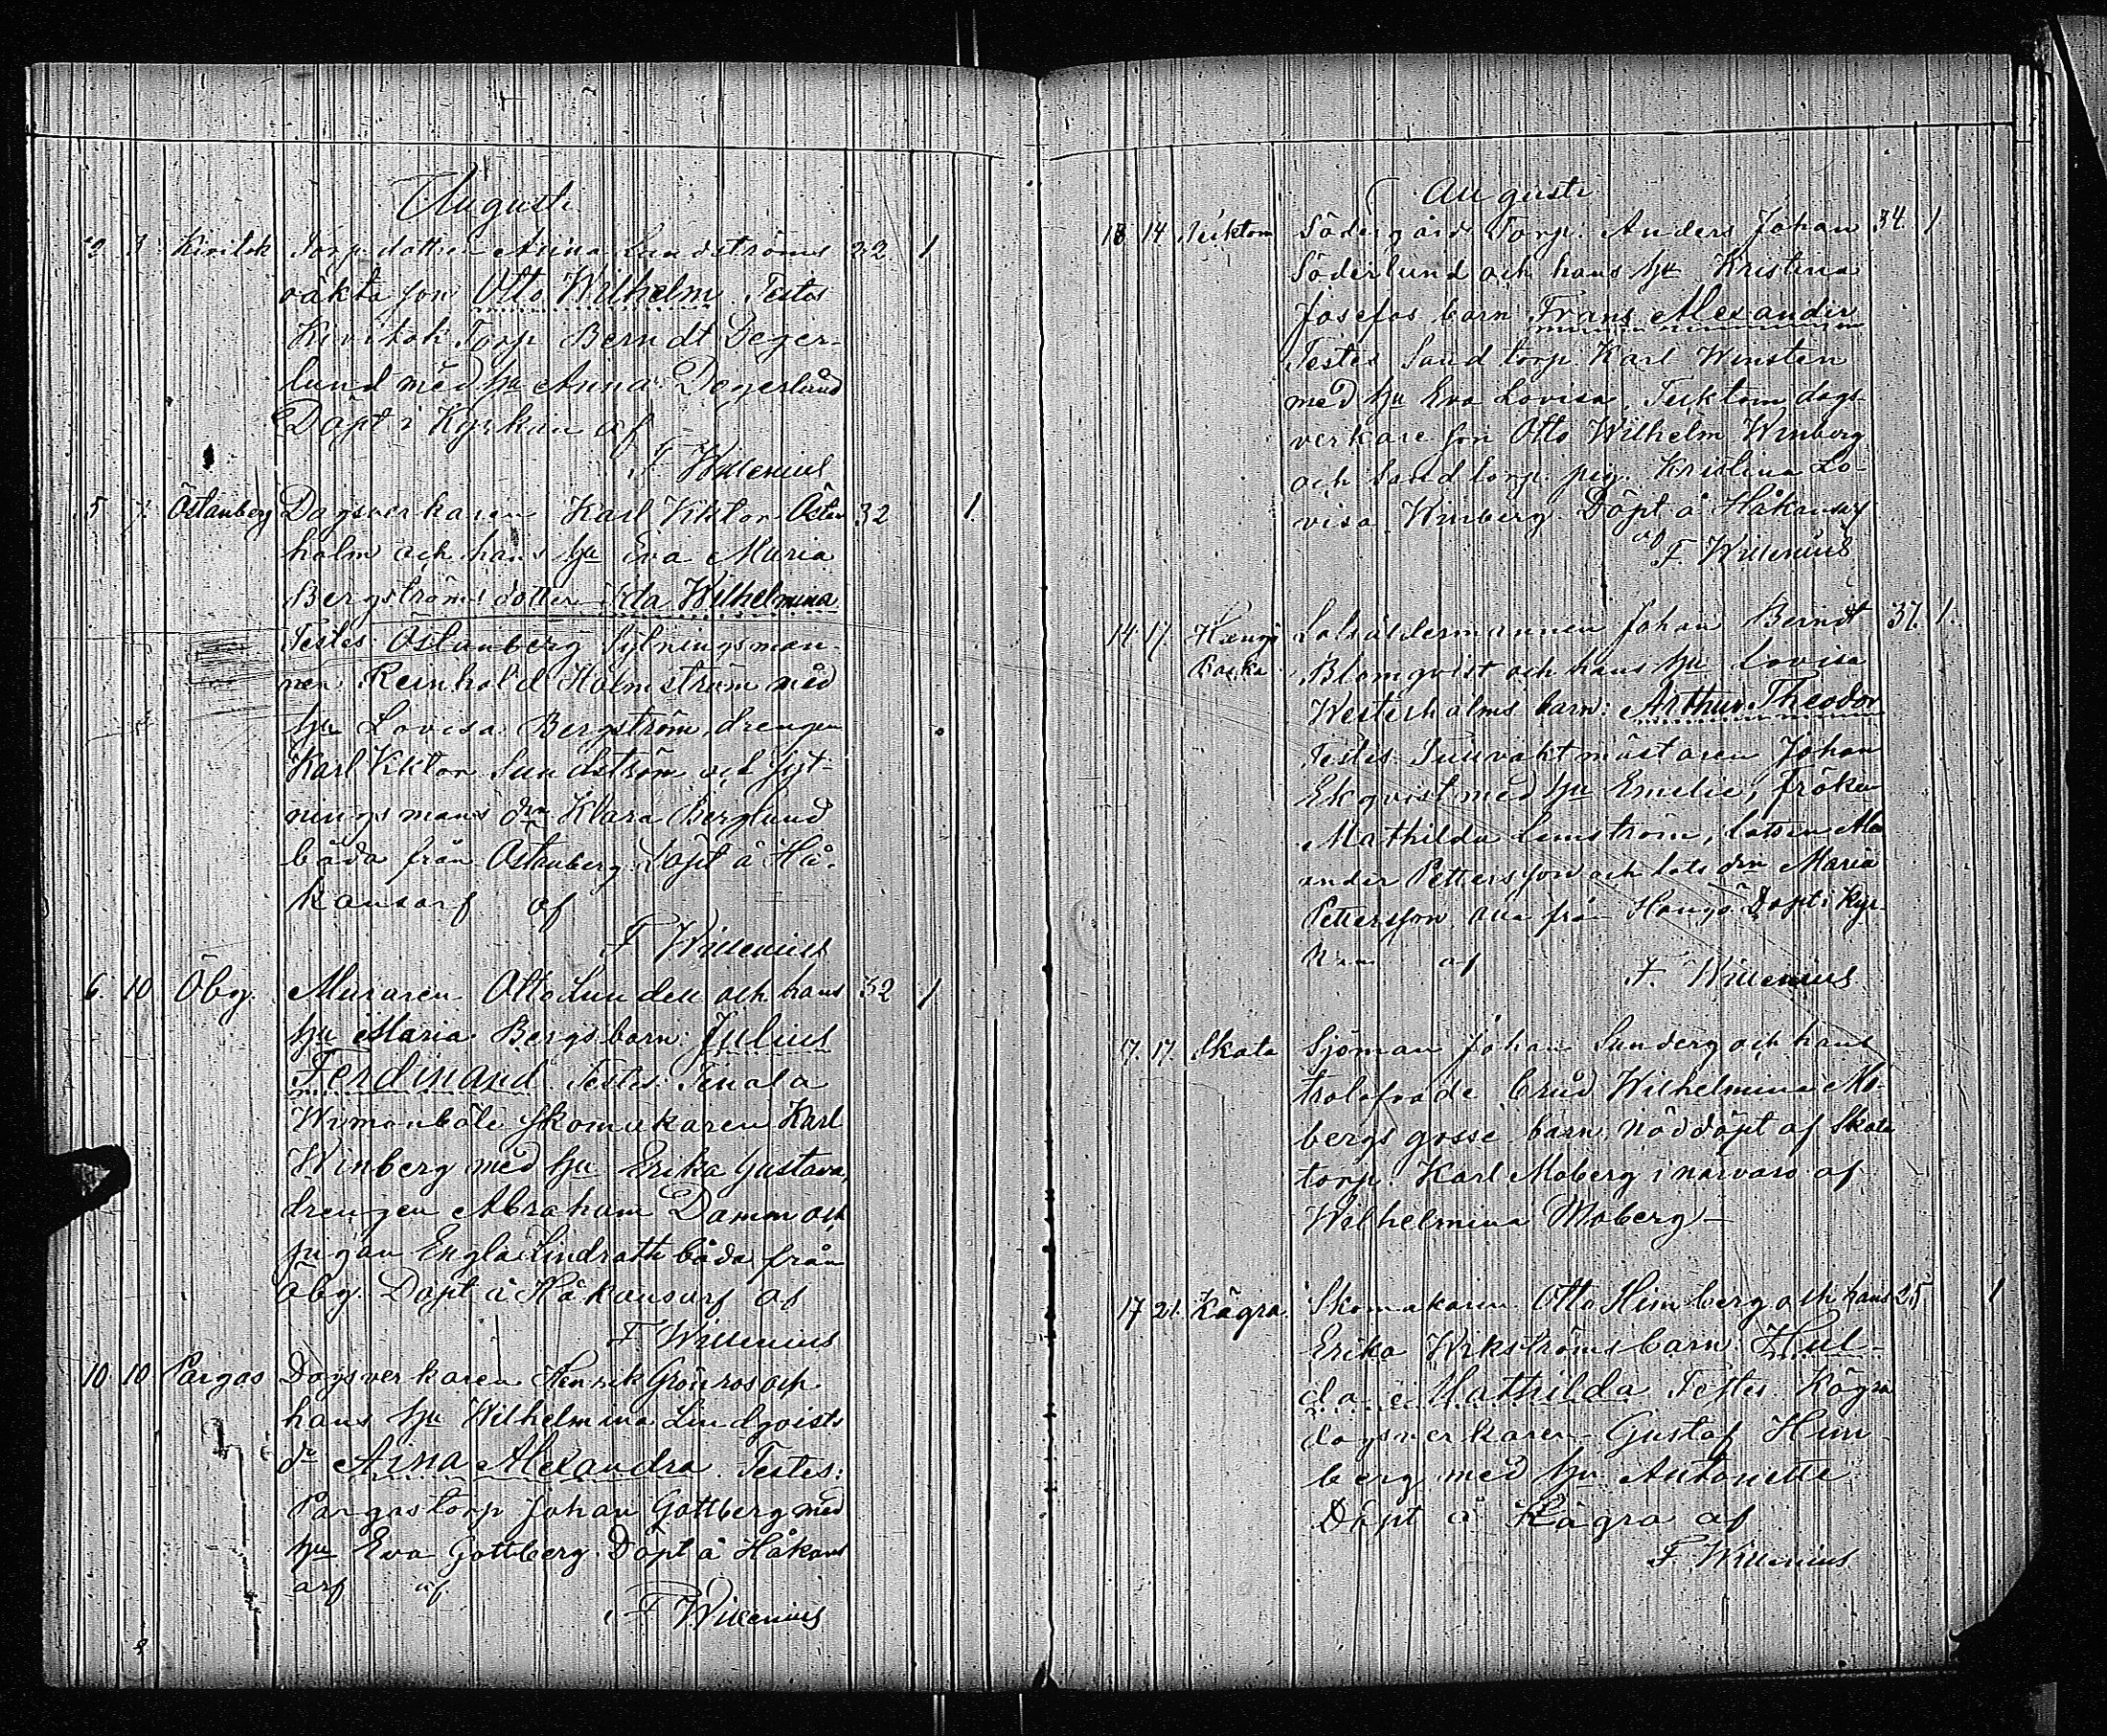 Augusti
2 3 Kivitok Torp. dotter Anna Lundströms 22 1
oäkta son Otto Wilhelm Testes
Kivitok Torp Berndt Deger-
lund med hu Anna Degerlund
Döpt i Kyrkan af
F Willenius
5 7. Östanberg Dagsverkaren Karl Viktor Öster 32 1.
holm och hans hu Eva Maria
Bergströms dotter Ida Wilhelmina
Testes Östanberg Sytningsman-
nen Reinhold Holmström med
hu Lovisa Bergström, drengen
Karl Viktor Sundström och syt-
ningsmans drn Klara Berglund
båda från Östanberg Döpt å Hå-
kansarf af
F Willenius
6. 10 Öby. Muraren Otto Lundell och hans 32 1
hu Maria Bergs barn Julius
Ferdinand. Testes Tenala
Wimonböle skomakaren Karl
Winberg med hu Erika Gustava,
drengen Abraham Damm och
pigan Engla Lindroth båda från
Öby. Döpt å Håkansarf af
F Willenius
10 10 Pargas Dagsverkaren Henrik Grönros och
hans hu Wilhelmina Lindqvists
dr Aina Alexandra. Testes:
Pargas torp Johan Gottberg med
hu Eva Gottberg Döpt å Håkans
arf af
F Willenius
Augusti
13 14 Tecktom Södergårds Torp. Anders Johan 34. 1
Söderlund och hans hu Kristina
Josefas barn Frans Alexander
Testes Sand torp. Karl Winsten
med hu Eva Lovisa, Tecktom dags-
verkare son Otto Wilhelm Winberg
och Sand torp. pig. Kristina Lo-
visa Winberg. Döpt å Håkansarf
af F. Willenius
14. 17. Lotsåldermannen Johan Berndt 37. 1.
Blomqvist och hans hu Lovisa
Westerholms barn: Arthur Theodor
Testes Tullvaktmästaren Johan
Ekqvist med hu Emelie, fröken
Mathilda Limström, lotsen Alex
ander Pettersson och lots drn Maria
Pettersson alla från Hangö Döpt i Kyr-
kan af F. Willenius
17. 17. Skata Sjöman Johan Sunderg och hans
trolofvade brud Wilhelmina Mo-
bergs gosse barn, nöddöpt af Skata
torp. Karl Moberg i närvaro af
Wilhelmina Moberg –
17 21. Kägra. Skomakaren Otto Himberg och hans 25 1
Erika Wikströms barn Hul-
da Mathilda Testes Kägra
dagsverkaren Gustaf Him
berg med hu Antonette
Döpt å Kägra af
F. Willenius